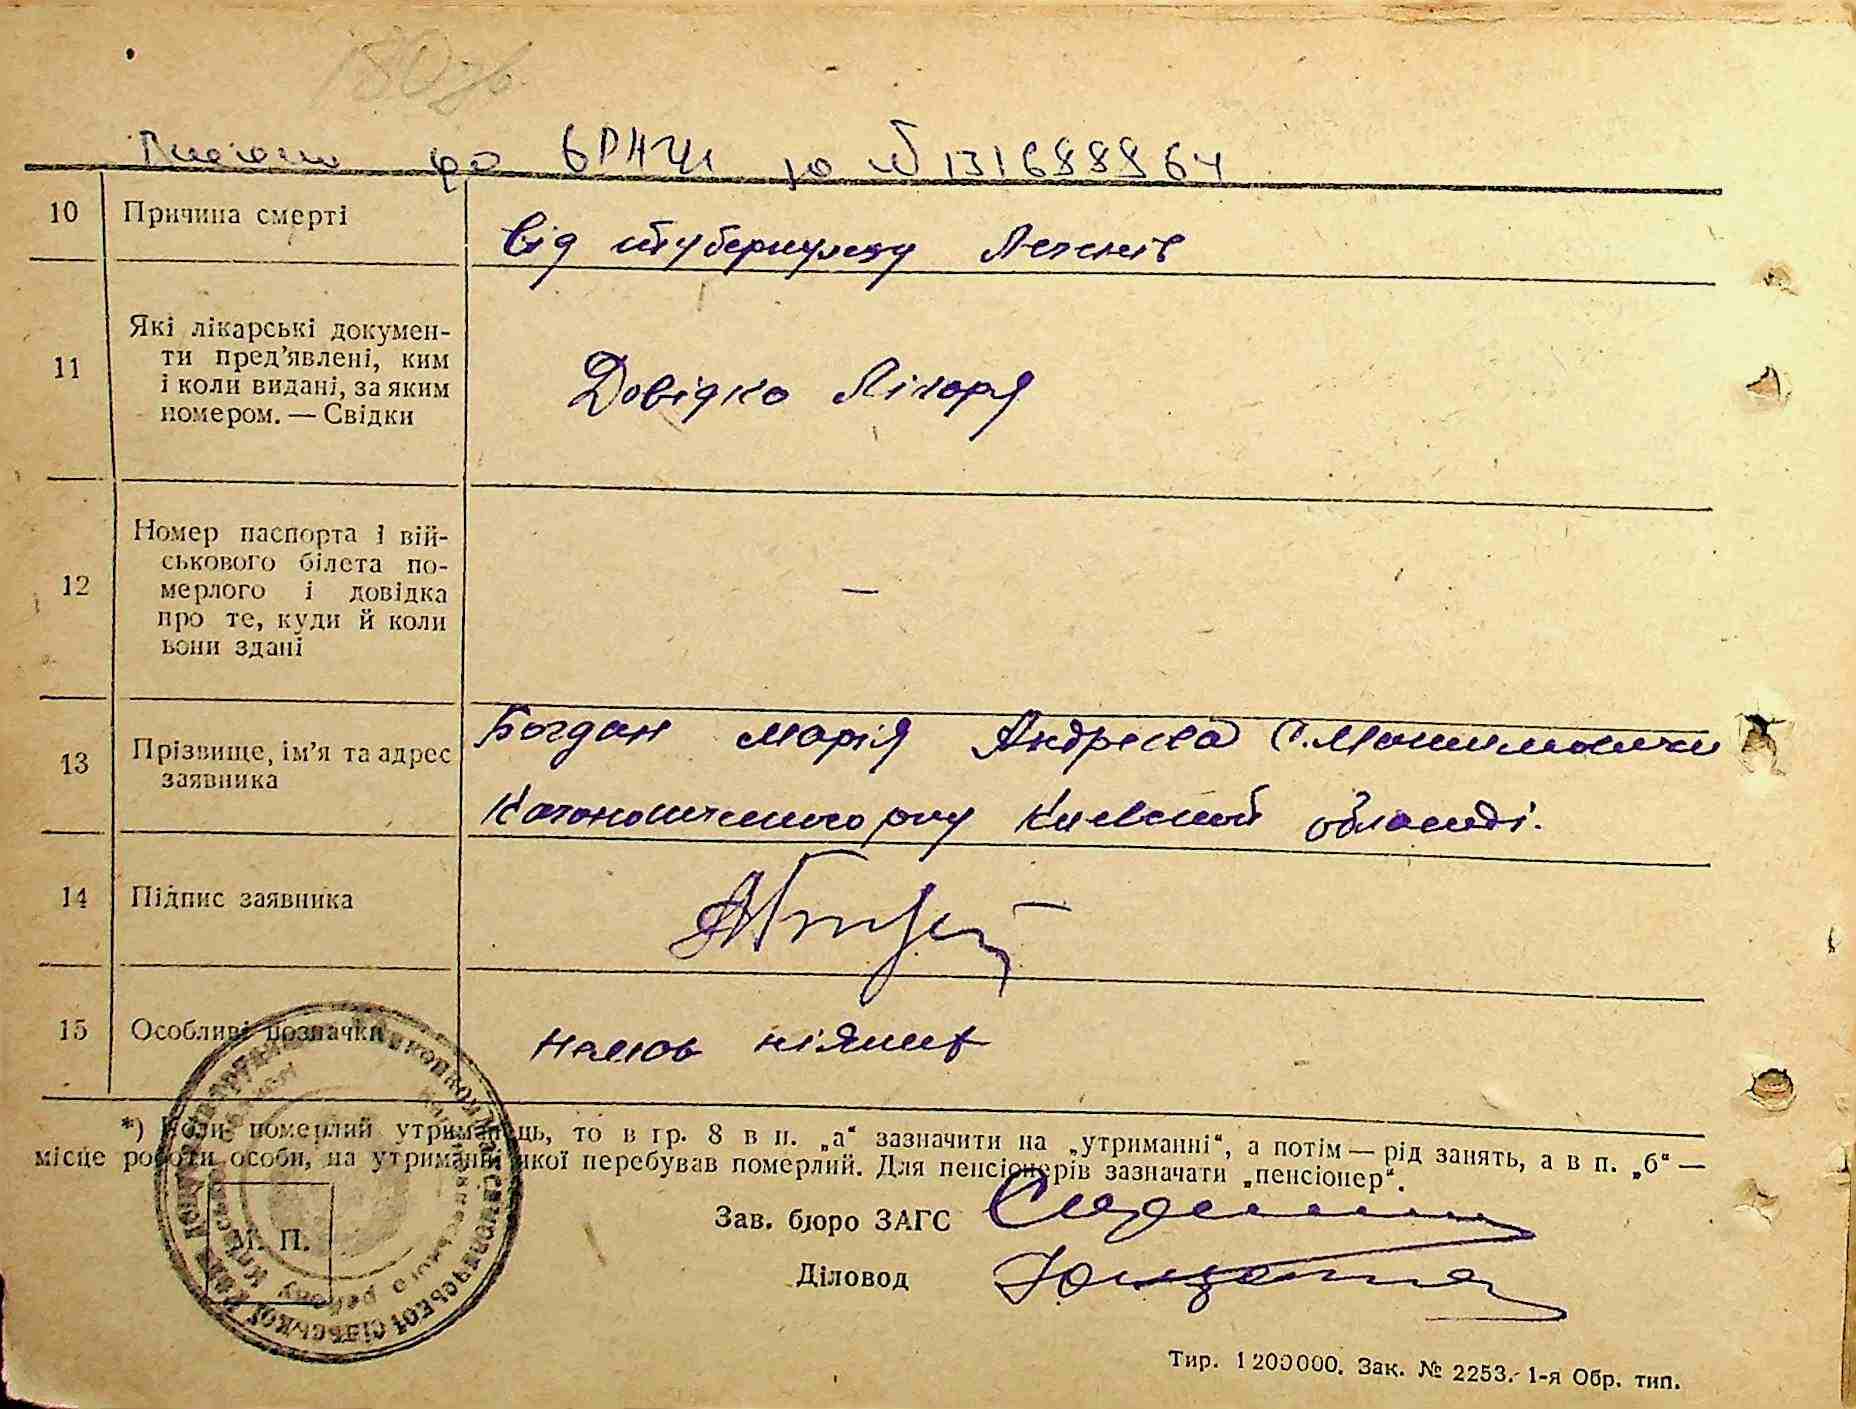 180
до за № 13168886
10 Причина смерті
Від туберкулезу легенів
11 Які лікарські докумен-
ти пред’явлені, ким
і коли видані, за яким
номером. — Свідки
Довідка лікаря
12 Номер паспорта і вій-
ськового білета по-
мерлого і довідка
про те, куди й коли
вони здані
—
13 Прізвище, ім’я та адрес
заявника
Богдан Марія Андреєва с.
району Киевской області.
14 Підпис заявника
15 Особливі позначки
нема ніяких
*) Коли померлий утриманець, то в гр. 8 в п. „а“ зазначити на „утриманні“, а потім — рід занять, а в п. „б“ —
місце роботи особи, на утриманні якої перебував померлий. Для пенсіонерів зазначати „пенсіонер“.
Зав. бюро ЗАГС
Діловод
М. П.
сільської Ради
району
Тир. 1200000. Зак. № 2253. 1-я Обр. тип.